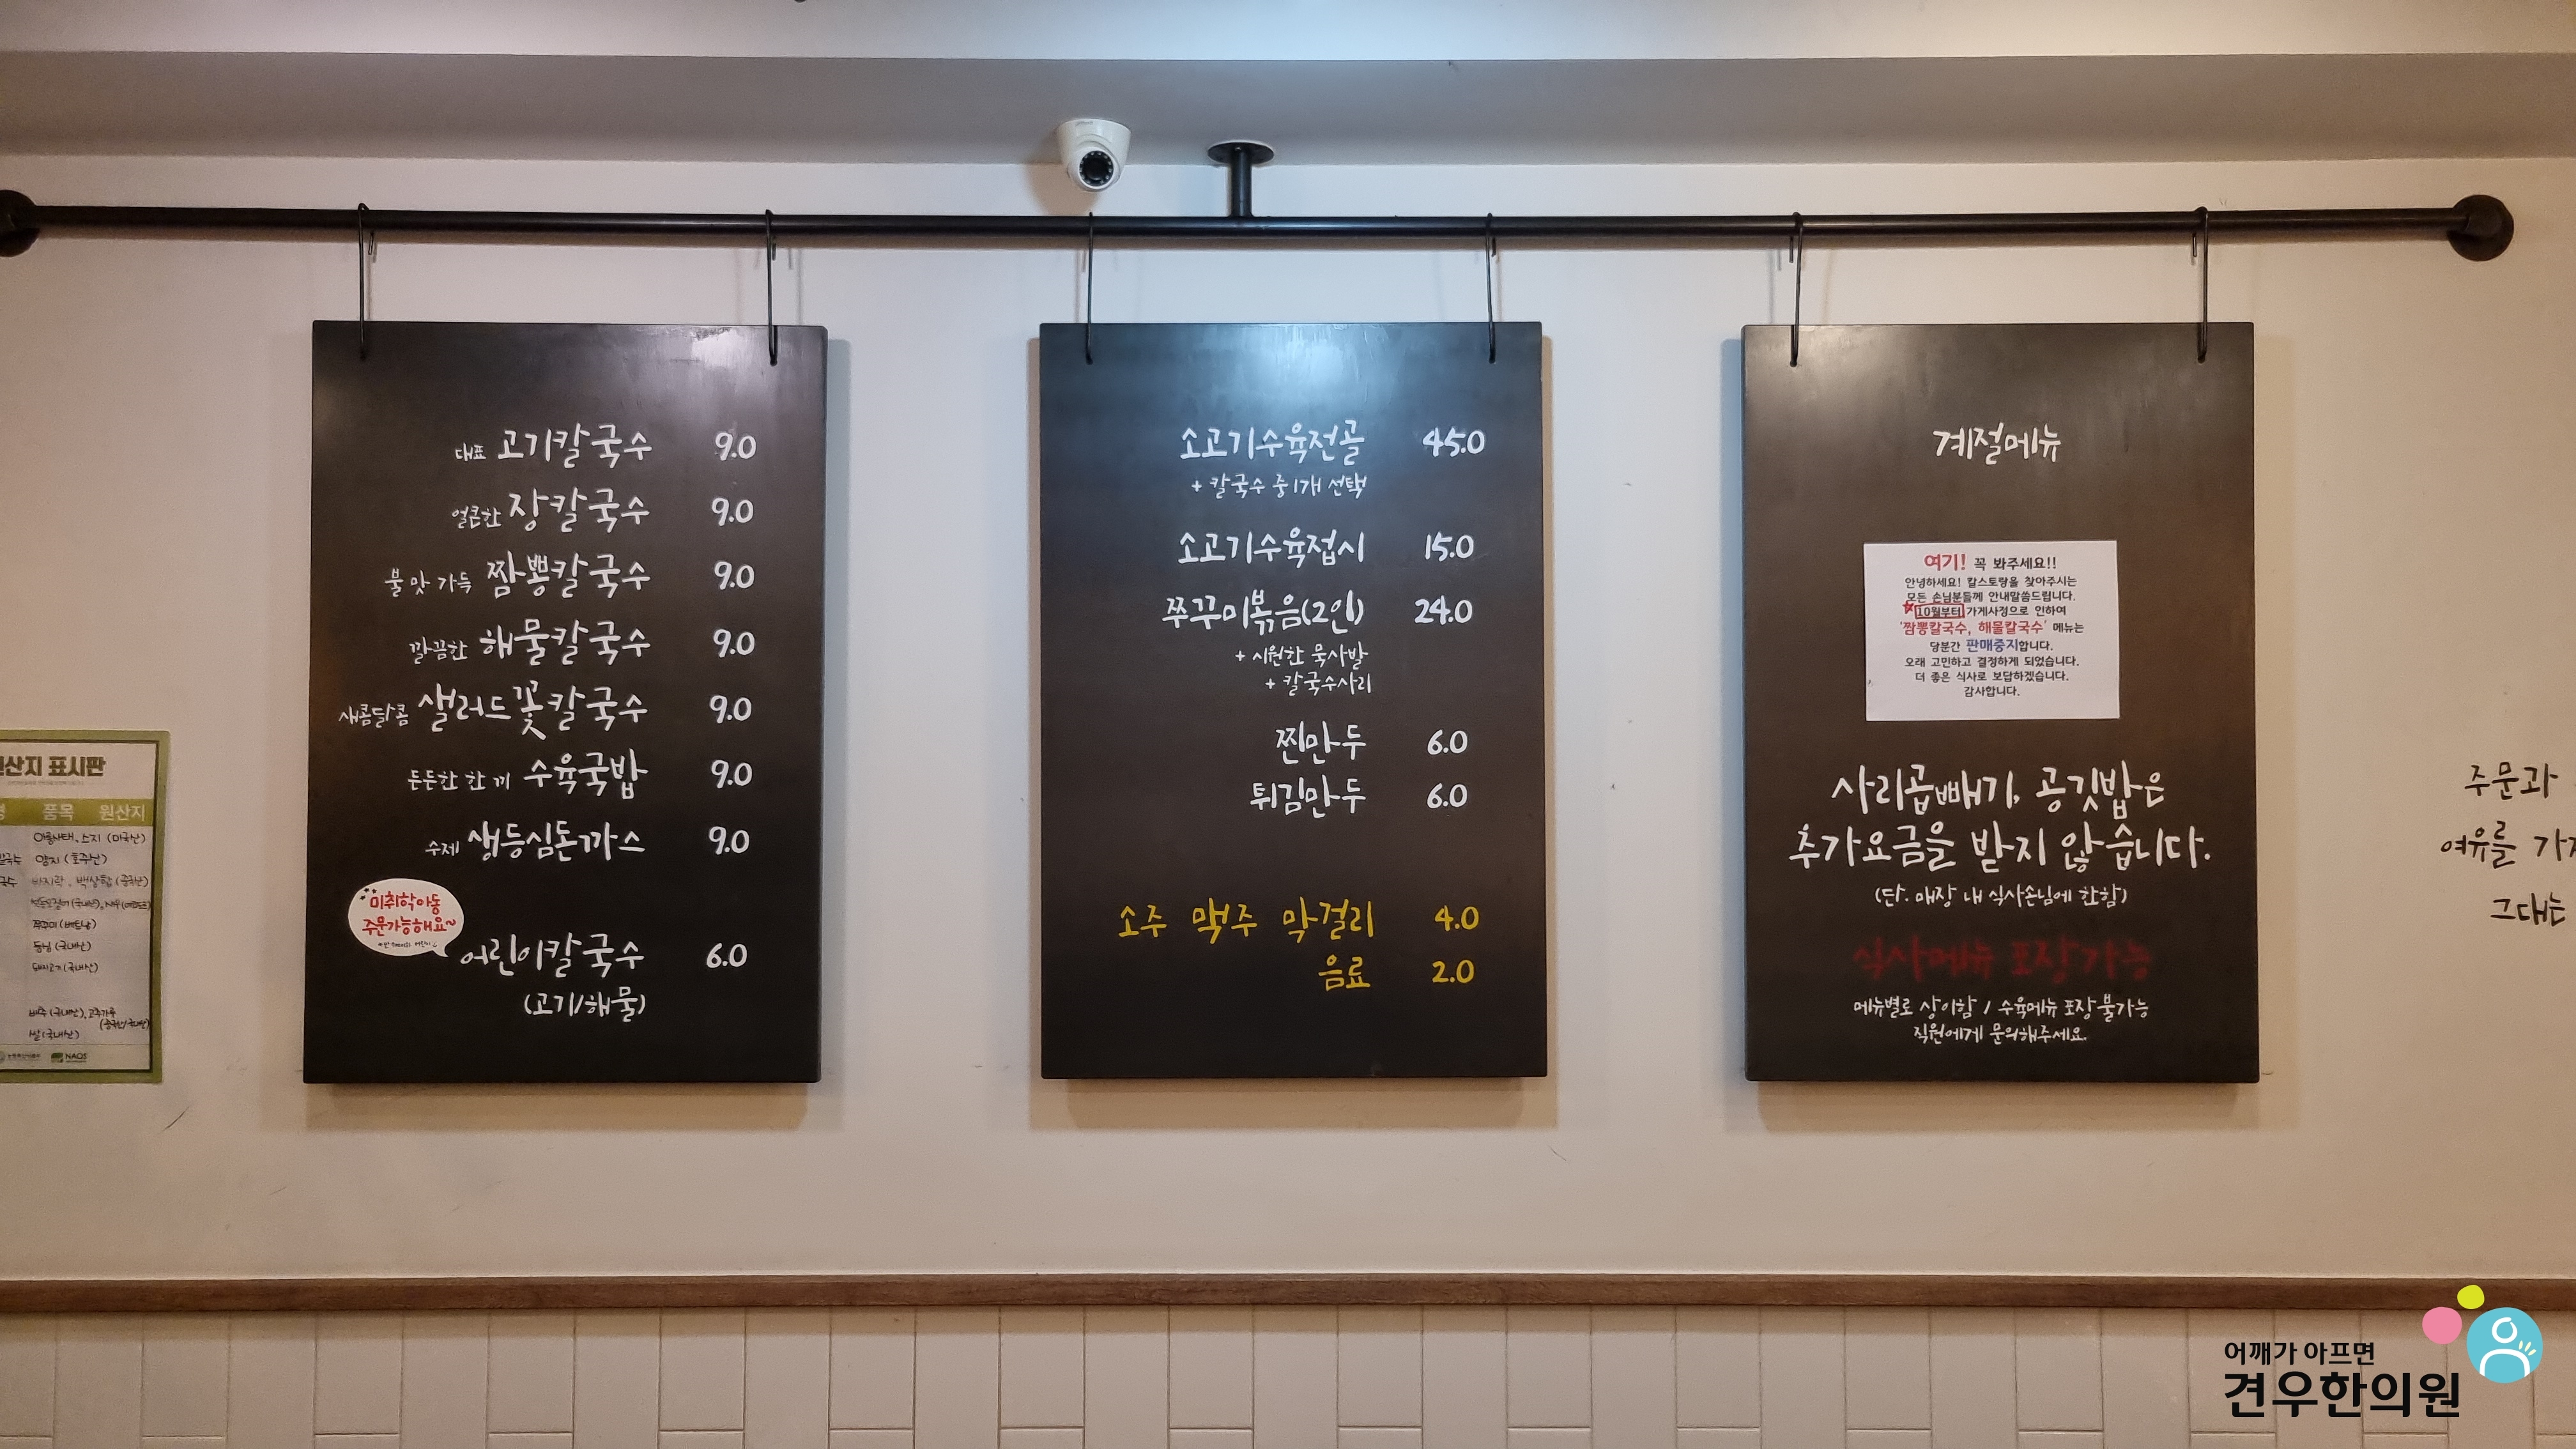 대표 고기칼국수 9.0
얼큰한 장칼국수 9.0
불맛 가득 짬뽕칼국수 9.0
깔끔한 해물칼국수 9.0
새콤달콤 샐러드꽃칼국수 9.0
든든한 한끼 수육국밥 9.0
수제 생등심돈까스 9.0
미취학아동
주문가능해요~
어린이칼국수 6.0
(고기/해물)
소고기수육전골 45.0
+ 칼국수 중 1개 선택
소고기수육접시 15.0
쭈꾸미볶음(2인) 24.0
+ 시원한 묵사발
+ 칼국수사리
찐만두 6.0
튀김만두 6.0
소주 맥주 막걸리 4.0
음료 2.0
계절메뉴
여기! 꼭 봐주세요!!
안녕하세요! 칼스토랑을 찾아주시는
모든 손님분들께 안내말씀드립니다.
10월부터 가게사정으로 인하여
'짬뽕칼국수, 해물칼국수' 메뉴는
당분간 판매중지합니다.
오래 고민하고 결정하게 되었습니다.
더 좋은 식사로 보답하겠습니다.
감사합니다.
사리곱빼기, 공깃밥은
추가요금을 받지 않습니다.
(단. 매장 내 식사손님에 한함)
식사메뉴 포장가능
메뉴별로 상이함 / 수육메뉴 포장불가능
직원에게 문의해주세요.
산지 표시판
품목 원산지
아롱사태, 스지 (미국산)
양지 (호주산)
바지락, 백상합 (중국산)
쭈꾸미 (베트남)
등심 (국내산)
돼지고기 (국내산)
배추 (국내산), 고추가루
(중국산/국내산)
쌀 (국내산)
NAQS
주문과
여유를
그대는
어깨가 아프면
견우한의원